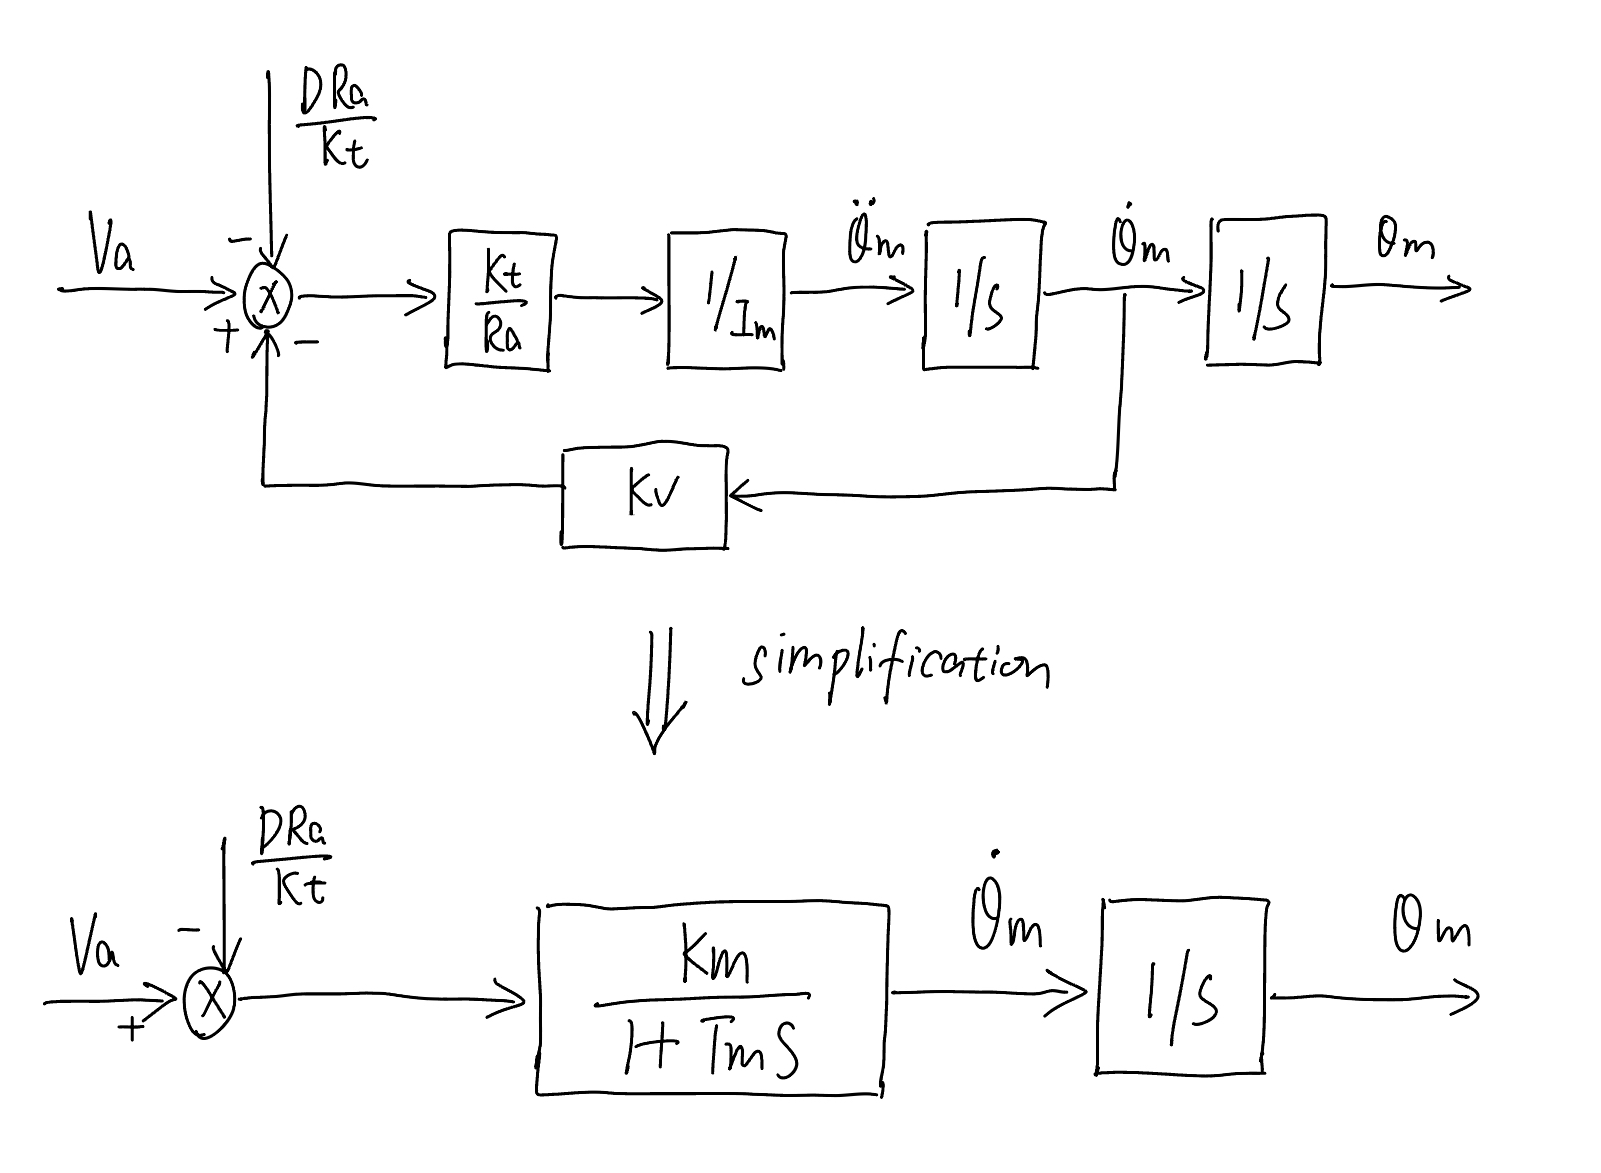 DRa
Kt
Va
-
+
-
X
Kt
Ra
1/Im
θ̈m
1/S
θ̇m
1/S
θm
Kv
simplification
DRa
Kt
Va
-
+
X
Km
1+TmS
θ̇m
1/S
θm